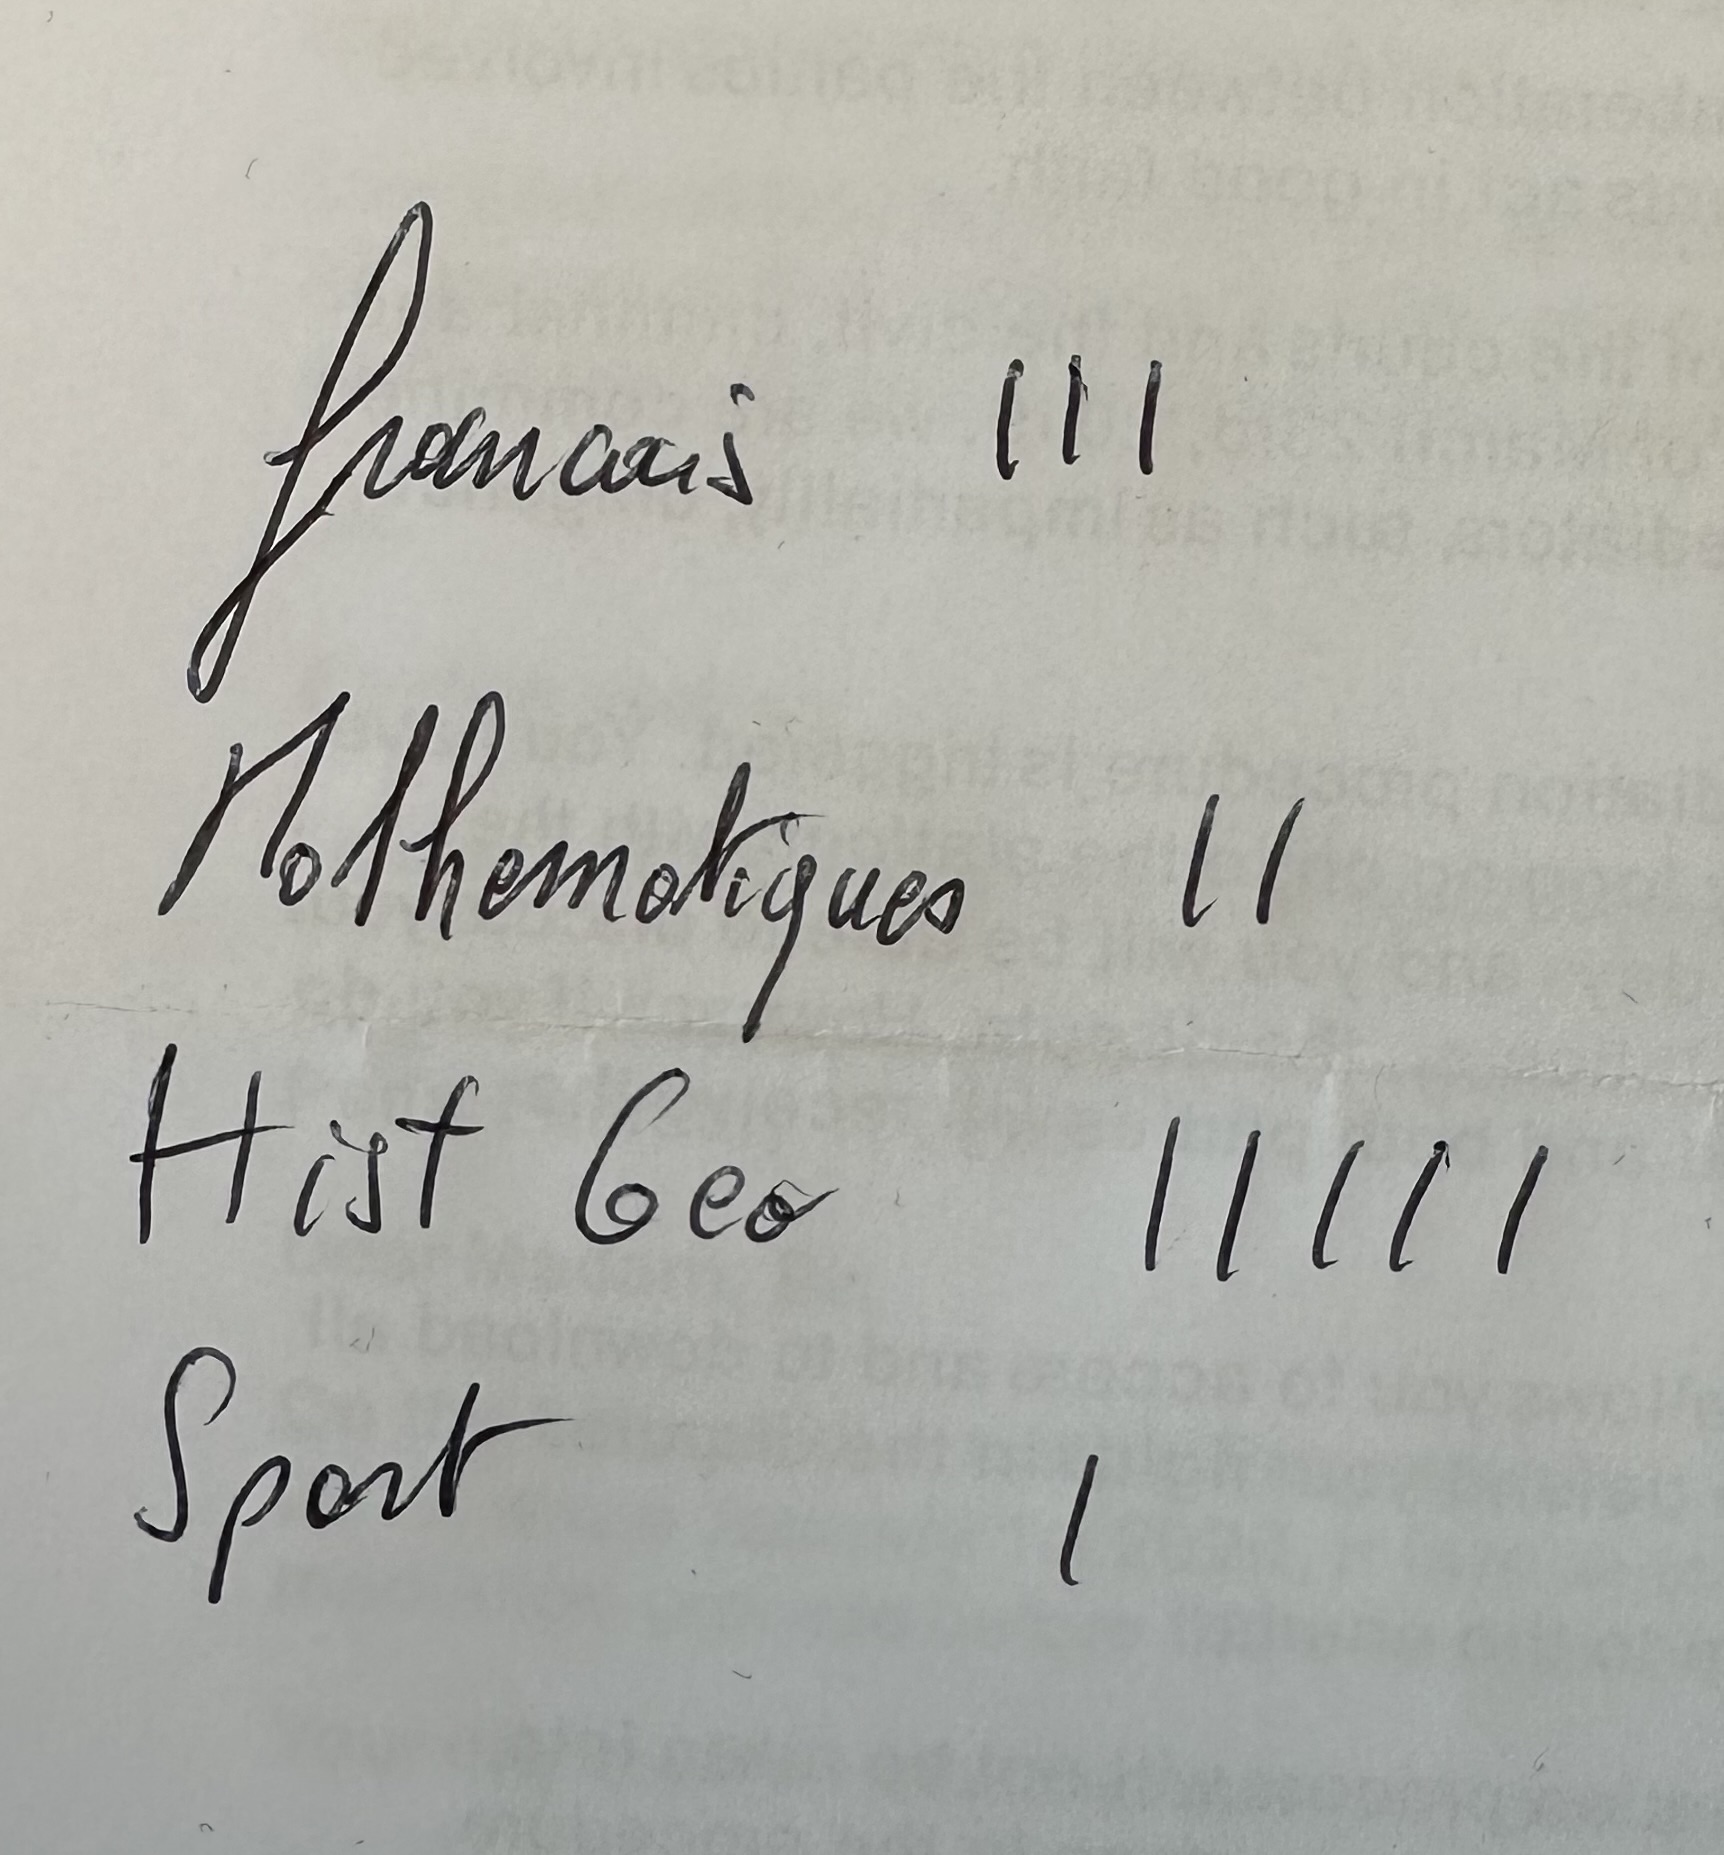 francais III
Mathematiques II
Hist Geo IIIII
Sport I